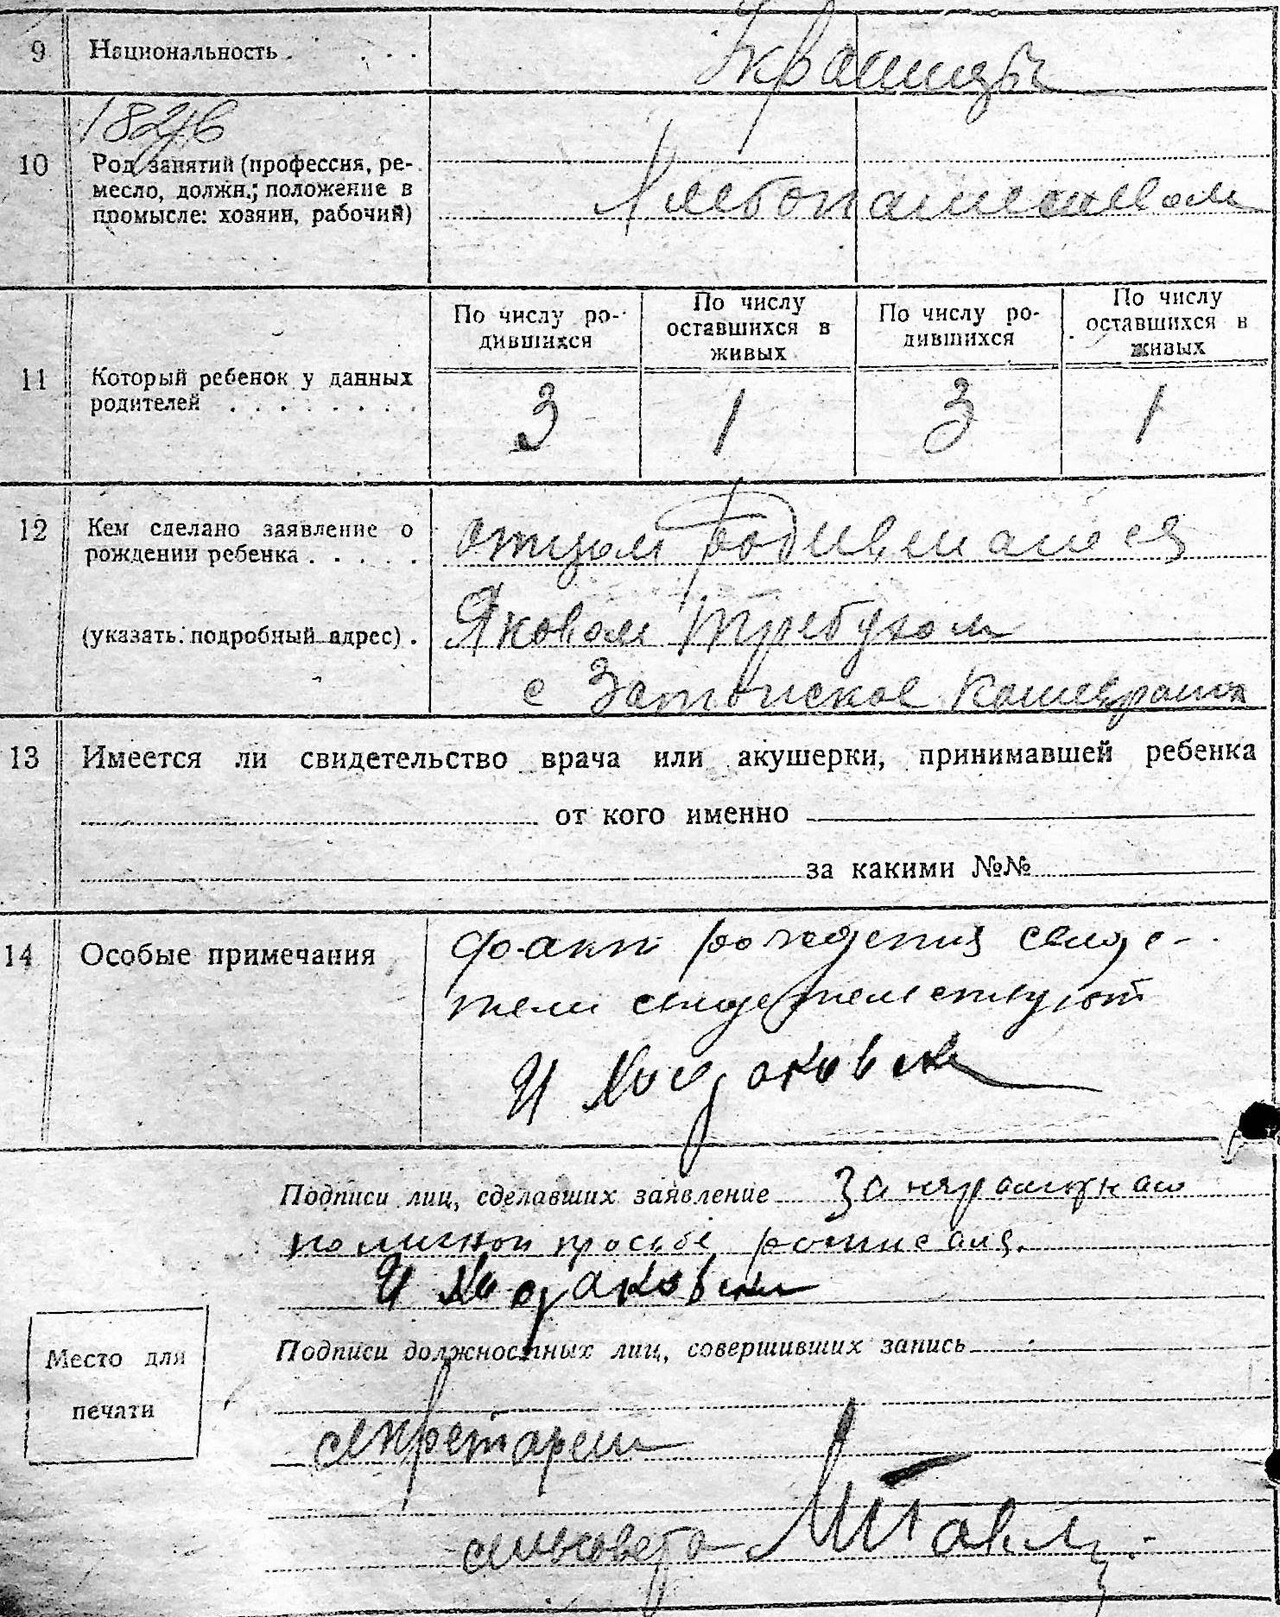 9 Национальность . . . . Украинцы
182/6
10 Род занятий (профессия, ре-
месло, должн.; положение в
промысле: хозяин, рабочий)
Хлебопашеством
По числу ро-
дившихся
По числу
оставшихся в
живых
По числу ро-
дившихся
По числу
оставшихся в
живых
11 Который ребенок у данных
родителей . . . . . . . .
3 1 3 1
12 Кем сделано заявление о
рождении ребенка . . . . .
отцом родившагося
(указать подробный адрес) . Яковом Требухом
с Затонское
13 Имеется ли свидетельство врача или акушерки, принимавшей ребенка
от кого именно
за какими №№
14 Особые примечания
факт рождения свиде-
тели свидетельствуют
И Ходаковски
Подписи лиц, сделавших заявление За неграмотнаго
по личной просьбе росписался
И Ходаковски
Подписи должностных лиц, совершивших запись
Место для
печати
секретарем
сельсовета